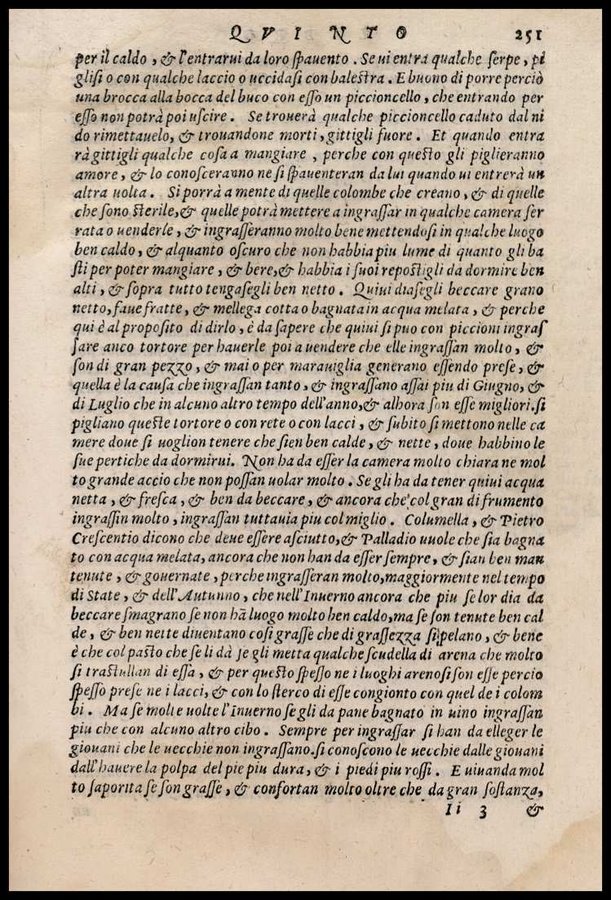 QVINTO 251
per il caldo, & l'entrarui da loro spauento. Se ui entra qualche serpe, pi
glisi o con qualche laccio o uccidasi con balestra. E buono di porre perciò
una brocca alla bocca del buco con esso un piccioncello, che entrando per
esso non potrà poi uscire. Se trouerà qualche piccioncello caduto dal ni
do rimettauelo, & trouandone morti, gittigli fuore. Et quando entra
rà gittigli qualche cosa a mangiare, perche con questo gli piglieranno
amore, & lo conosceranno ne si spauenteran da lui quando ui entrerà un
altra uolta. Si porrà a mente di quelle colombe che creano, & di quelle
che sono sterile, & quelle potrà mettere a ingrassar in qualche camera ser
rata o uenderle, & ingrasseranno molto bene mettendosi in qualche luogo
ben caldo, & alquanto oscuro che non habbia piu lume di quanto gli ba
sti per poter mangiare, & bere, & habbia i suoi repostigli da dormire ben
alti, & sopra tutto tengasegli ben netto. Quiui diasegli beccare grano
netto, faue fratte, & mellega cotta o bagnata in acqua melata, & perche
qui è al proposito di dirlo, è da sapere che quiui si puo con piccioni ingras
sare anco tortore per hauerle poi a uendere che elle ingrassan molto, &
son di gran pezzo, & mai o per marauiglia generano essendo prese, &
quella è la causa che ingrassan tanto, & ingrassano assai piu di Giugno, &
di Luglio che in alcuno altro tempo dell'anno, & alhora son esse migliori. si
pigliano queste tortore o con rete o con lacci, & subito si mettono nelle ca
mere doue si uoglion tenere che sien ben calde, & nette, doue habbino le
sue pertiche da dormirui. Non ha da esser la camera molto chiara ne mol
to grande accio che non possan uolar molto. Se gli ha da tener quiui acqua
netta, & fresca, & ben da beccare, & ancora che col gran di frumento
ingrassin molto, ingrassan tuttauia piu col miglio. Columella, & Pietro
Crescentio dicono che deue essere asciutto, & Palladio uuole che sia bagna
to con acqua melata, ancora che non han da esser sempre, & sian ben man
tenute, & gouernate, perche ingrasseran molto, maggiormente nel tempo
di State, & dell'Autunno, che nell'Inuerno ancora che piu se lor dia da
beccare smagrano se non hã luogo molto ben caldo, ma se son tenute ben cal
de, & ben nette diuentano cosi grasse che di grassezza si pelano, & bene
è che col pasto che se li dà se gli metta qualche scudella di arena che molto
si trastullan di essa, & per questo spesso ne i luoghi arenosi son esse percio
spesso prese ne i lacci, & con lo sterco di esse congionto con quel de i colom
bi. Ma se molte uolte l'Inuerno se gli da pane bagnato in uino ingrassan
piu che con alcuno altro cibo. Sempre per ingrassar si han da elleger le
giouani che le uecchie non ingrassano. si conoscono le uecchie dalle giouani
dall'hauere la polpa del pie piu dura, & i piedi piu rossi. E uiuanda mol
to saporita se son grasse, & confortan molto oltre che da gran sostanza,
Ii 3 &